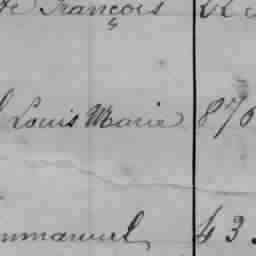 François 22
Louis Marie 870
mmanuel 43